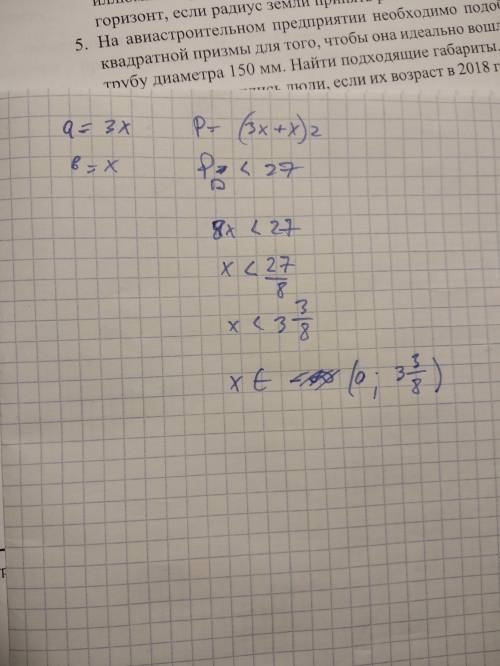 горизонт, если радиус земли принять р
5. На авиастроительном предприятии необходимо подоб
квадратной призмы для того, чтобы она идеально вошл
трубу диаметра 150 мм. Найти подходящие габариты.
люди, если их возраст в 2018 г
a = 3x P = (3x+x)2
в = x P < 27
8x < 27
x < 27/8
x < 3 3/8
x ∈ (0; 3 3/8)